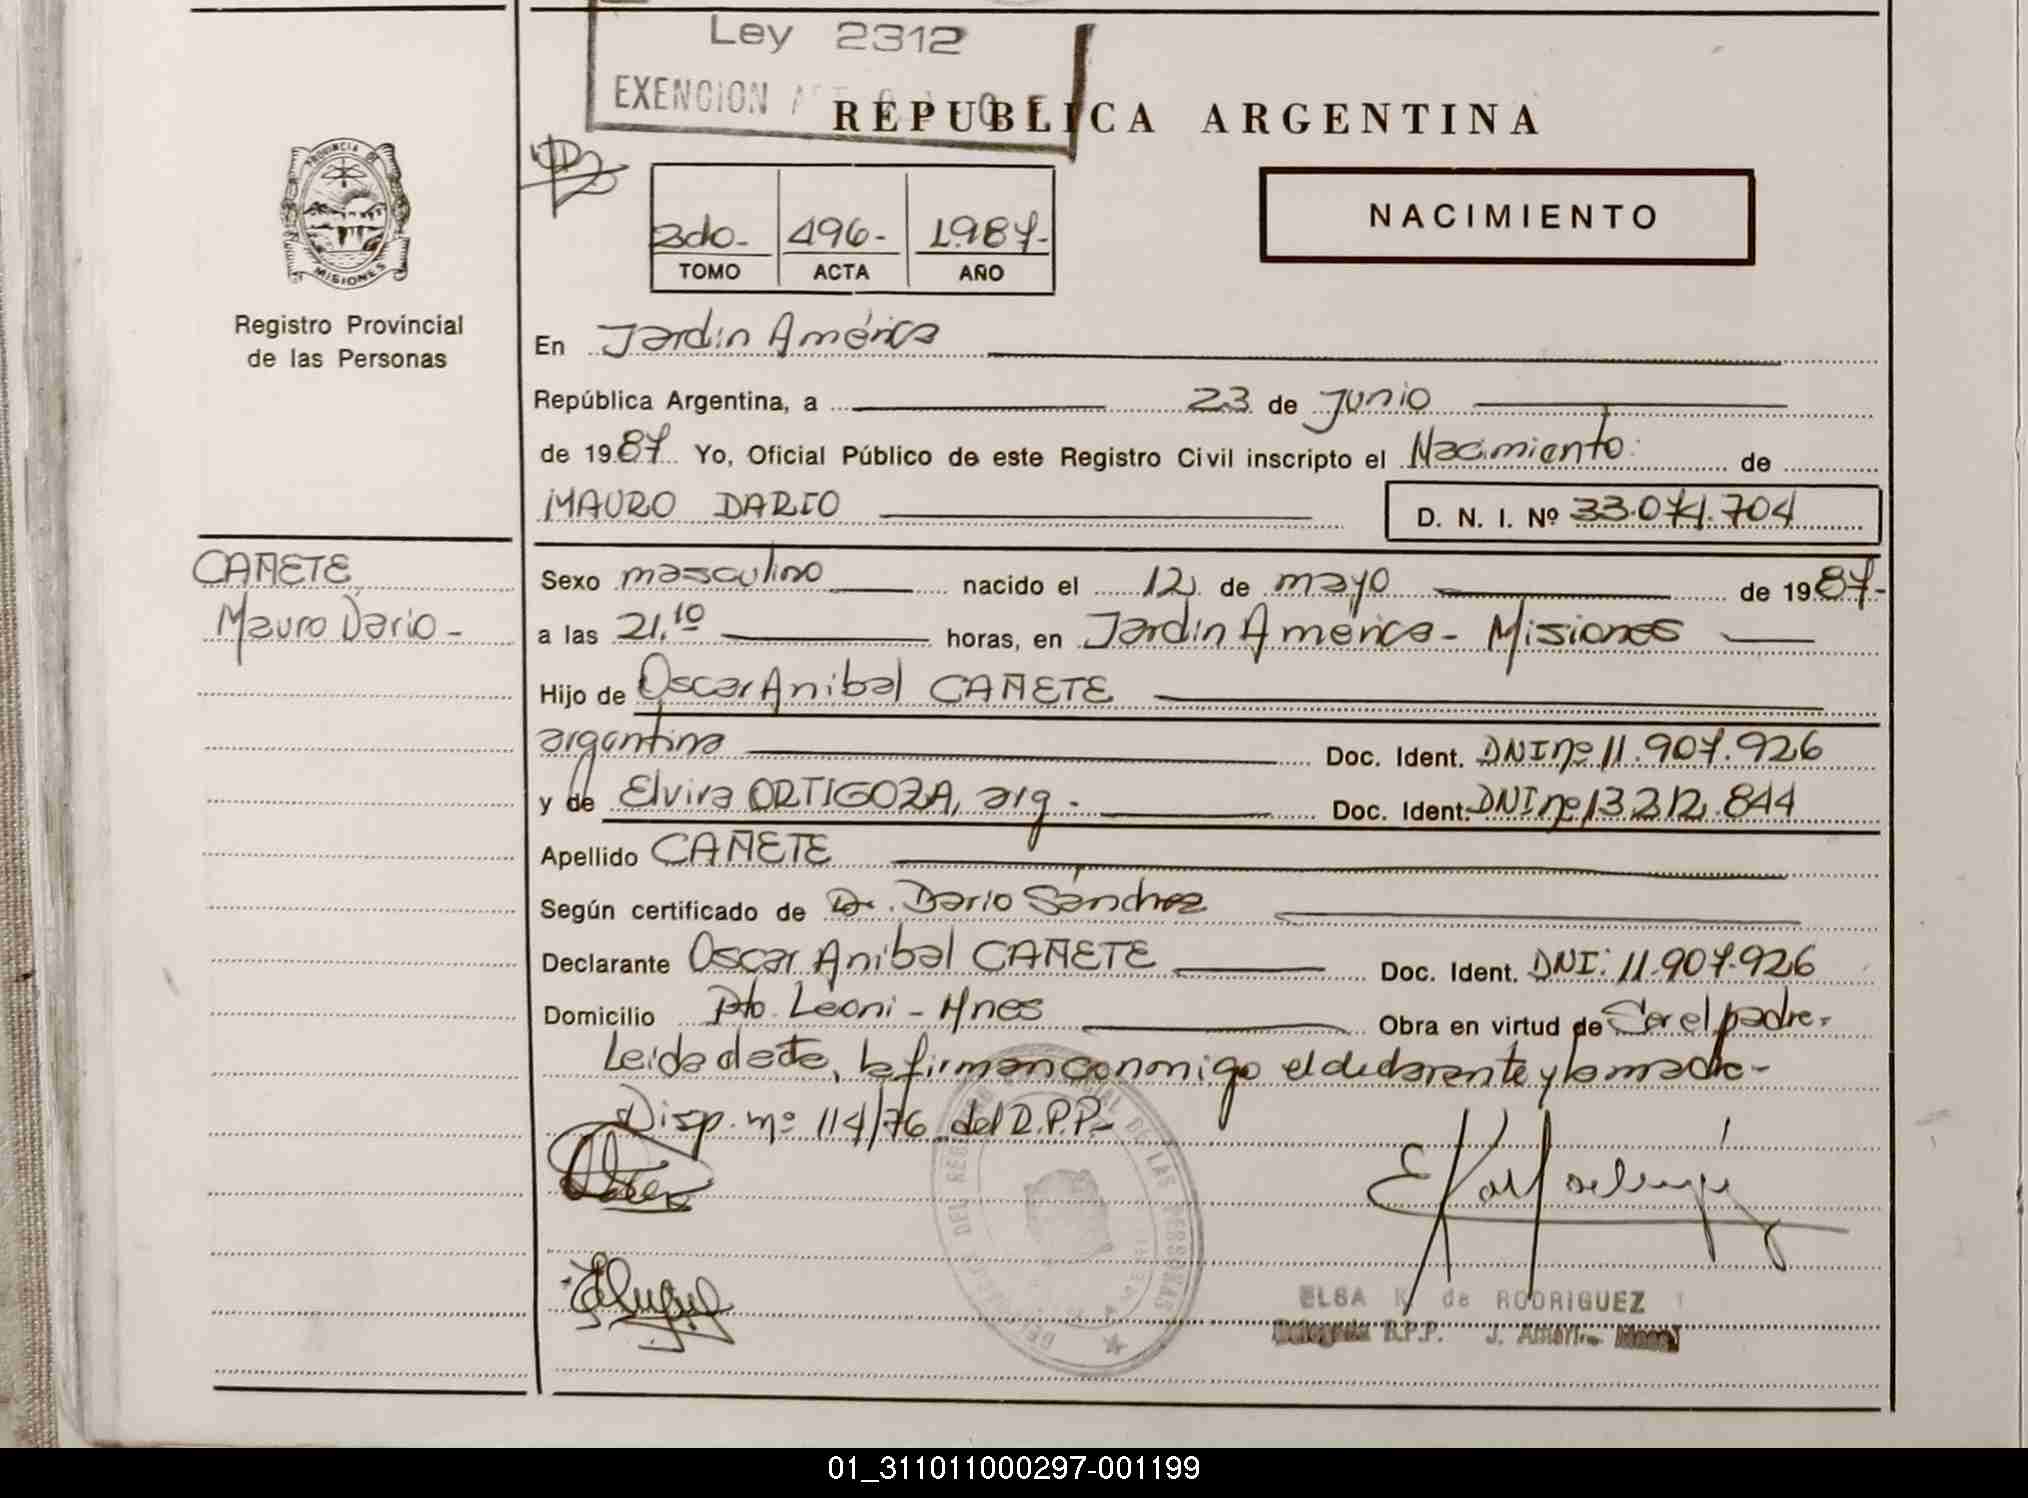 Ley 2312
EXENCION
REPUBLICA ARGENTINA
PROVINCIA DE
MISIONES
Registro Provincial
de las Personas
NACIMIENTO
2do- 496- 1987-
TOMO ACTA AÑO
En Jardin América
República Argentina, a 23 de Junio
de 1987 Yo, Oficial Público de este Registro Civil inscripto el Nacimiento de
MAURO DARIO D. N. I. Nº 33.074.704
CAÑETE
Mauro Dario -
Sexo masculino nacido el 12 de mayo de 1987-
a las 21,10 horas, en Jardin América - Misiones
Hijo de Oscar Anibal CAÑETE
argentina Doc. Ident. DNI nº 11.907.926
y de Elvira ORTIGOZA, arg. Doc. Ident. DNI nº 13.212.844
Apellido CAÑETE
Según certificado de Dr. Dario Sánchez
Declarante Oscar Anibal CAÑETE Doc. Ident. DNI: 11.907.926
Domicilio Pto. Leoni - Mnes Obra en virtud de Ser el padre.
Leida el acta, la firman conmigo el declarante y la madre -
Disp. nº 114/76 del R.P.P.-
DEL REGISTRO DE LAS PERSONAS
ELSA K. de RODRIGUEZ
Delegada R.P.P. J. Améri
01_311011000297-001199